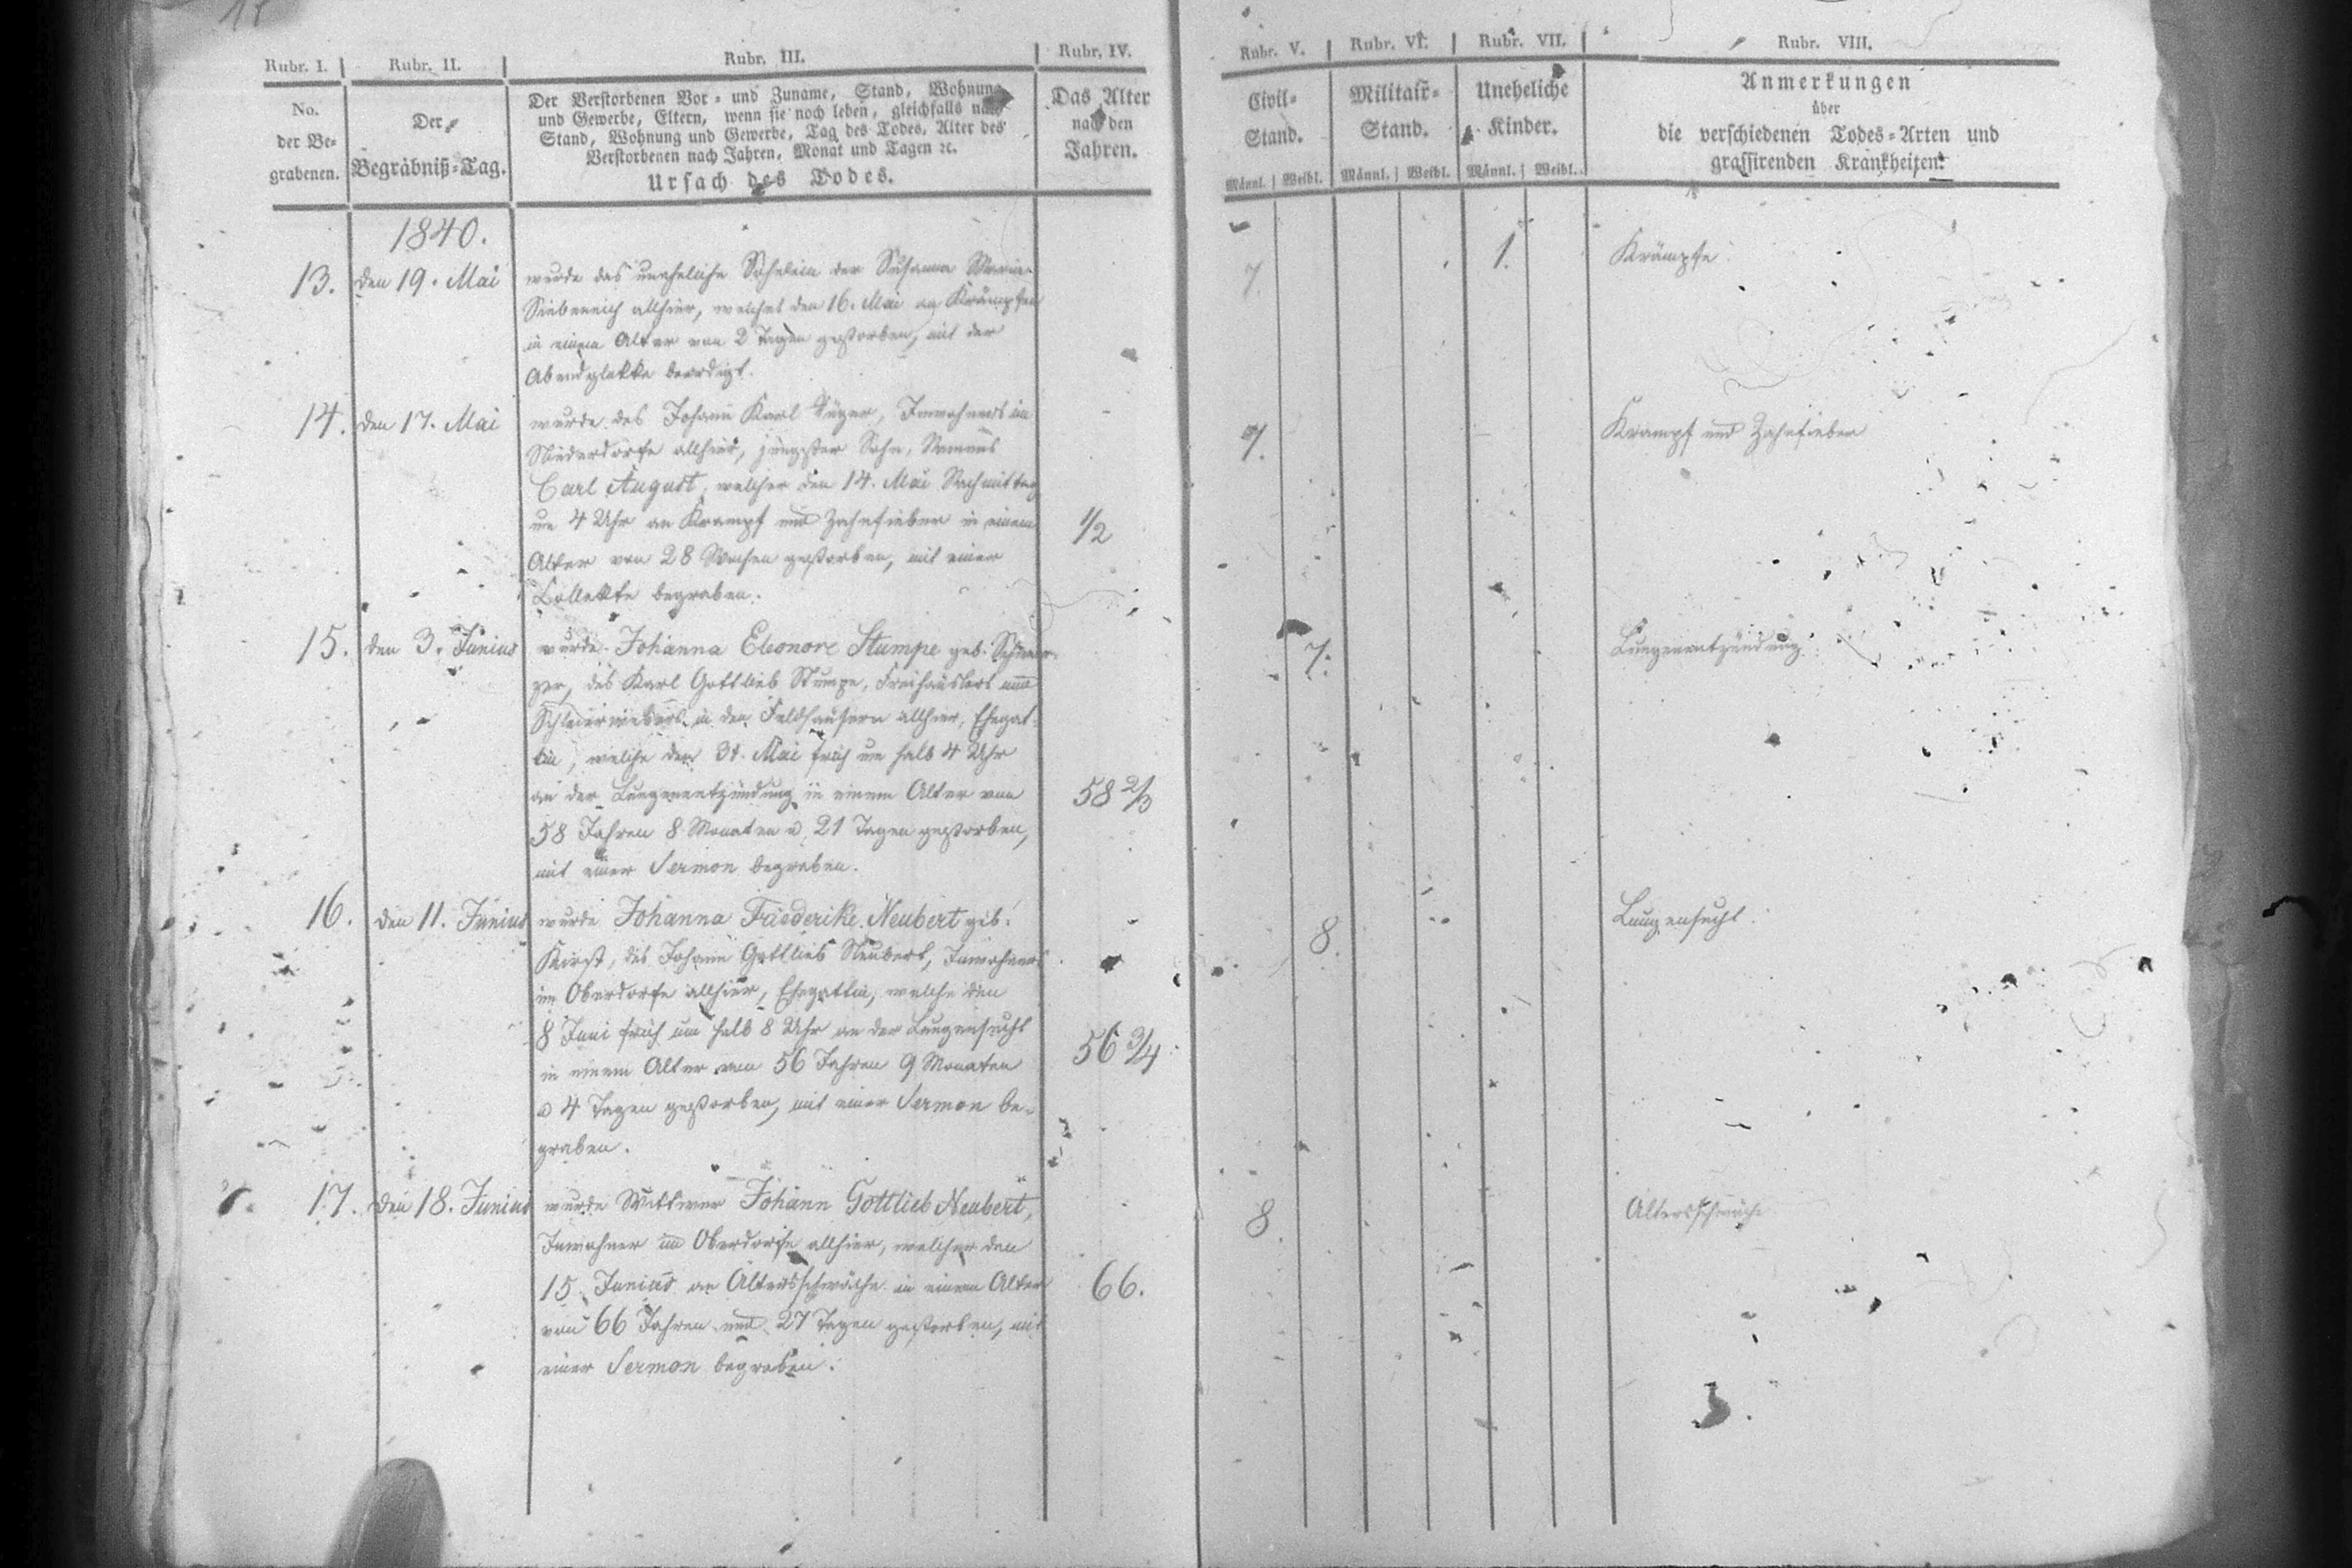 Rubr. I.
Rubr. II.
Rubr. III.
Rubr. IV.
Rubr. V.
Rubr. VI.
Rubr. VII.
Rubr. VIII.
No.
der Be-
grabenen.
Der
Begräbniß-Tag.
Der Verstorbenen Vor- und Zuname, Stand, Wohnung
und Gewerbe, Eltern, wenn sie noch leben, gleichfalls nach
Stand, Wohnung und Gewerbe, Tag des Todes, Alter des
Verstorbenen nach Jahren, Monat und Tagen ꝛc.
Ursach des Todes.
Das Alter
nach den
Jahren.
Civil-
Stand.
Männl. Weibl.
Militair-
Stand.
Männl. Weibl.
Uneheliche
Kinder.
Männl. Weibl.
Anmerkungen
über
die verschiedenen Todes-Arten und
grassirenden Krankheiten.
1840.
13. den 19. Mai
wurde das uneheliche Söhnlein der Susanna Maria
Siebeneich allhier, welches den 16. Mai an Krämpfen
in einem Alter von 2 Tagen gestorben, mit der
Abendglokke beerdigt.
7.
1.
Krämpfe
14. den 17. Mai
wurde des Johann Karl, Inwohners im
Niederdorfe allhier, jüngster Sohn, Namens
Carl August, welcher den 14. Mai Nachmittag
um 4 Uhr an Krampf und Zahnfieber in einem
Alter von 28 Wochen gestorben, mit einer
Collekte begraben.
1/2
7.
Krampf und Zahnfieber
15. den 3. Junius
wurde Johanna Eleonore Stumpe geb.
des Karl Gottlieb Stumpe, Freihäuslers und
Schleierwebers in den Feldhäusern allhier, Ehegat-
tin, welche den 31. Mai früh um halb 4 Uhr
an der Lungenentzündung in einem Alter von
58 Jahren 8 Monaten u. 21 Tagen gestorben,
mit einer Sermon begraben.
58 2/3
7.
Lungenentzündung
16. den 11. Junius
wurde Johanna Friederike Neubert geb.
Kirst, des Johann Gottlieb Neubert, Inwohners
im Oberdorfe allhier, Ehegattin, welche den
8 Juni früh um halb 8 Uhr an der Lungensucht
in einem Alter von 56 Jahren 9 Monaten
u 4 Tagen gestorben, mit einer Sermon be-
graben.
56 3/4
8.
Lungensucht.
17. den 18. Junius
wurde Wittwer Johann Gottlieb Neubert,
Inwohner im Oberdorfe allhier, welcher den
15. Junius an Altersschwäche in einem Alter
von 66 Jahren und 27 Tagen gestorben, mit
einer Sermon begraben.
66.
8.
Altersschwäche